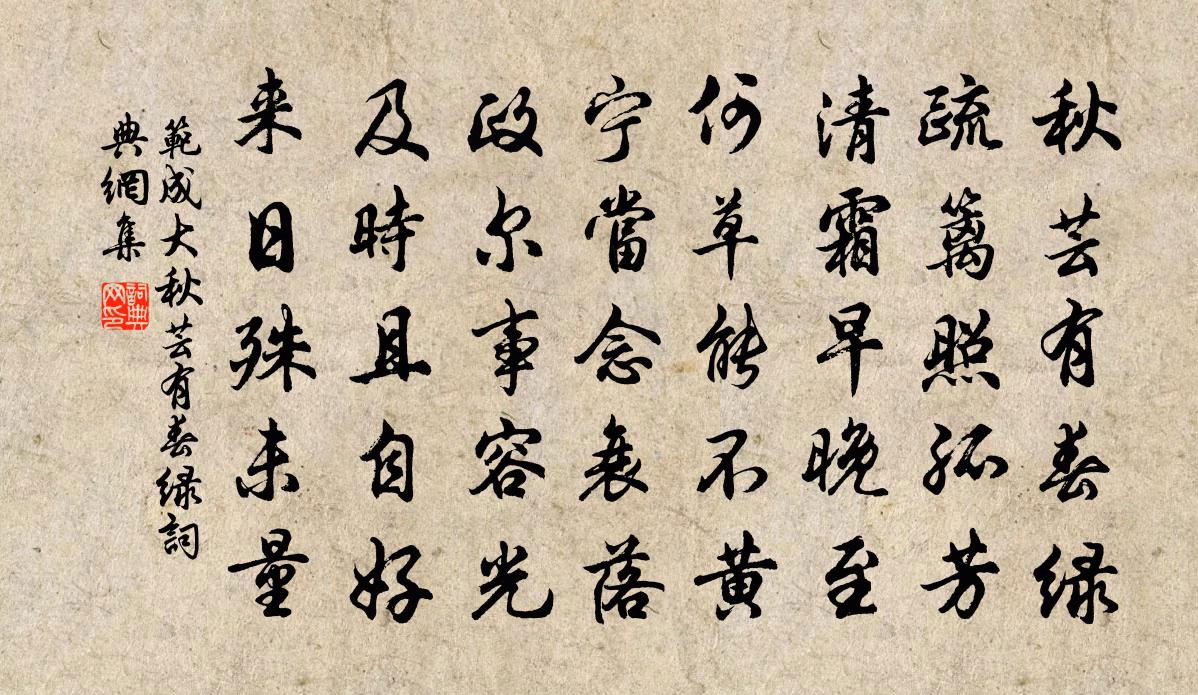 秋芸有春緑
疏篱照孤芳
清霜早晚至
何草能不黄
宁當念衰落
政尔事容光
及時且自好
来日殊未量
範成大秋芸有春緑詞
典網集
詞典
网印